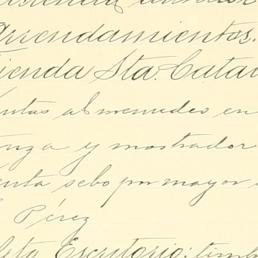 Arrendamientos.
ienda Sta. Catar
ntas al menudes en
nza y mostrador
enta sebo por mayor
Pérez
Escritorio: timb